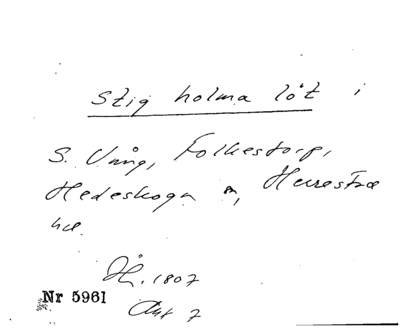 Stig holma löt i
S. Vång, Folkestorp,
Hedeskoga, Herrestad
hd.
År. 1807
Nr 5961
Akt 7